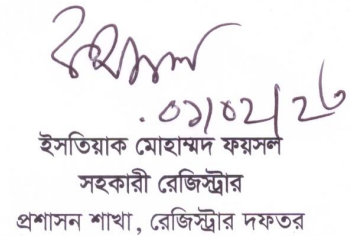 ফয়সল
০১/০২/২৬
ইসতিয়াক মোহাম্মদ ফয়সল
সহকারী রেজিস্ট্রার
প্রশাসন শাখা, রেজিস্ট্রার দফতর